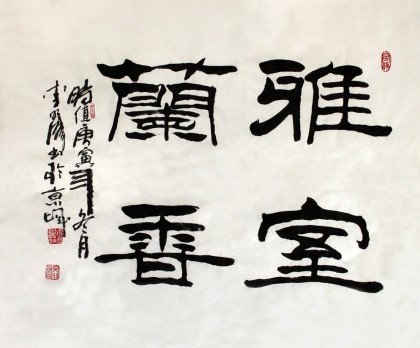 雅室
蘭香
時值庚寅年冬月
李勝書於京城